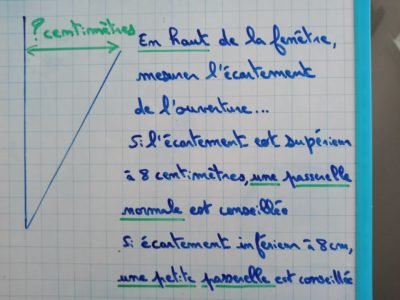 ? centimètres
En haut de la fenêtre,
mesurer l'écartement
de l'ouverture...
Si l'écartement est supérieur
à 8 centimètres, une passerelle
normale est conseillée
Si écartement inférieur à 8 cm,
une petite passerelle est conseillée